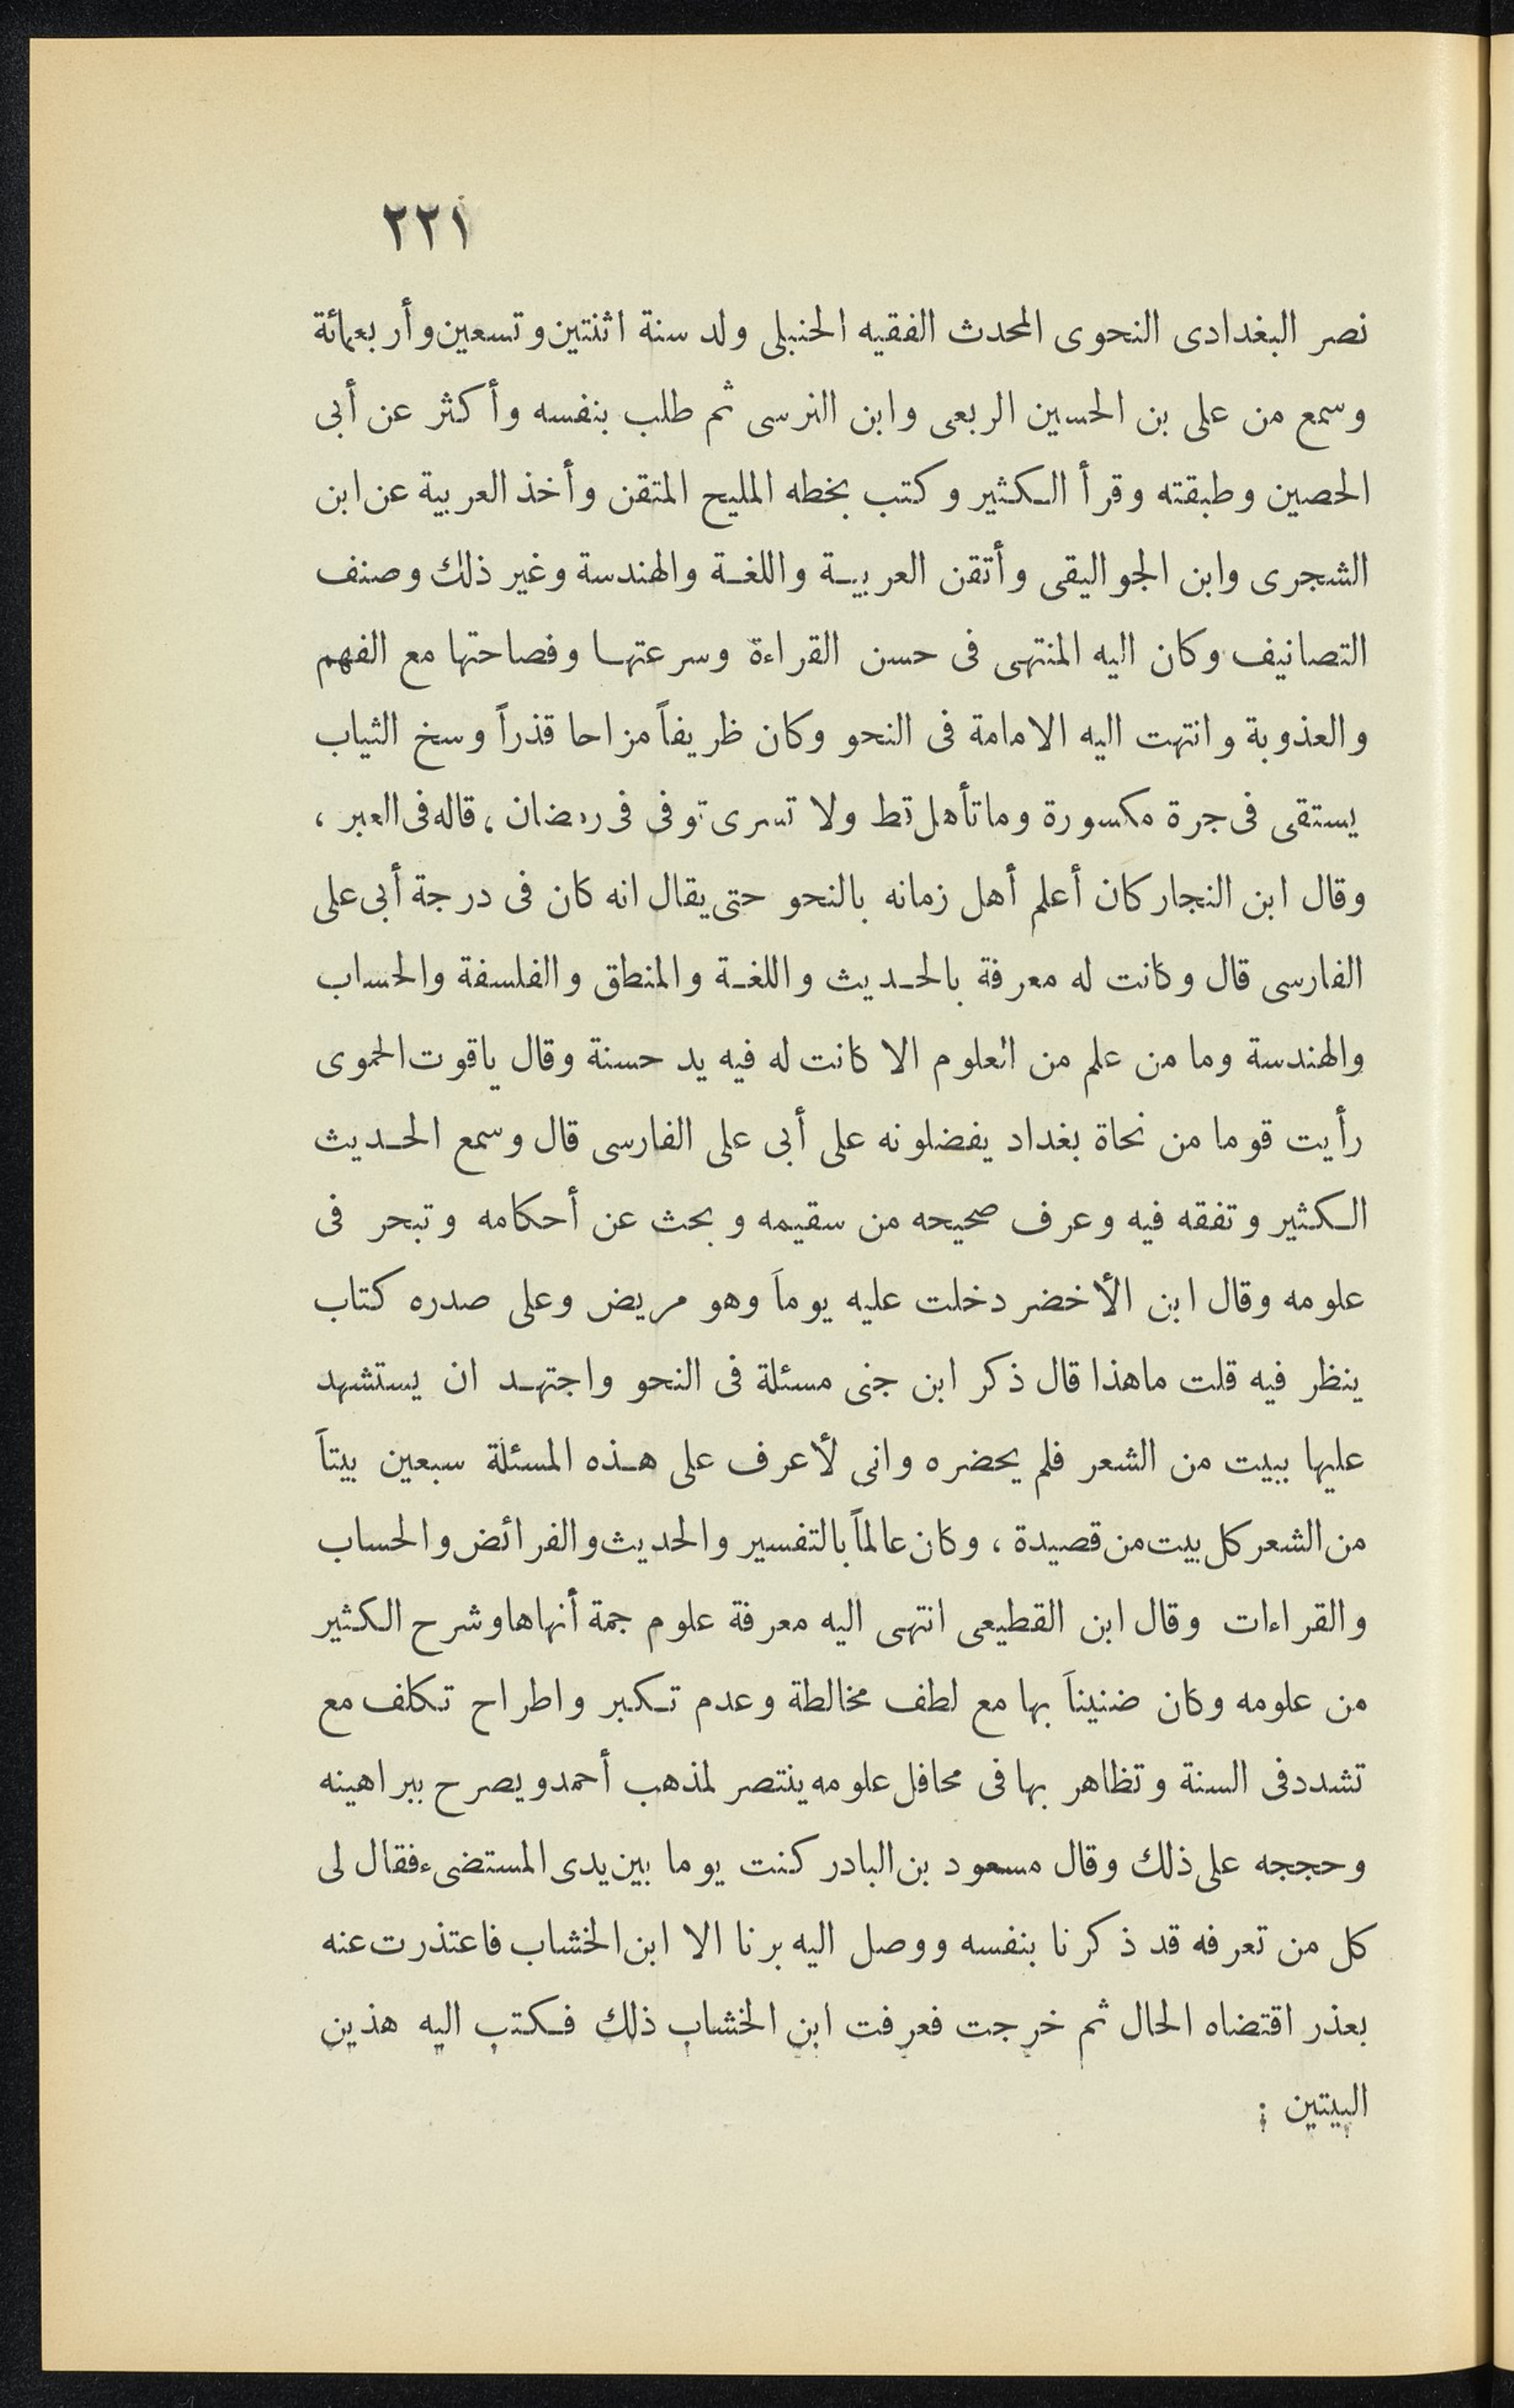 ٢٢١
نصر البغدادى النحوى المحدث الفقيه الحنبلى ولد سنة اثنتين وتسعين وأربعمائة
وسمع من على بن الحسين الربعى وابن النرسى ثم طلب بنفسه وأكثر عن أبى
الحصين وطبقته وقرأ الكثير وكتب بخطه المليح المتقن وأخذ العربية عن ابن
الشجرى وابن الجواليقى وأتقن العربية واللغة والهندسة وغير ذلك وصنف
التصانيف وكان اليه المنتهى فى حسن القراءة وسرعتها وفصاحتها مع الفهم
والعذوبة وانتهت اليه الامامة فى النحو وكان ظريفاً مزاحا قذراً وسخ الثياب
يستقى فى جرة مكسورة وما تأهل قط ولا تسرى توفى فى رمضان ، قاله فى العبر ،
وقال ابن النجار كان أعلم أهل زمانه بالنحو حتى يقال انه كان فى درجة أبى على
الفارسى قال وكانت له معرفة بالحديث واللغة والمنطق والفلسفة والحساب
والهندسة وما من علم من العلوم الا كانت له فيه يد حسنة وقال ياقوت الحموى
رأيت قوما من نحاة بغداد يفضلونه على أبى على الفارسى قال وسمع الحديث
الكثير وتفقه فيه وعرف صحيحه من سقيمه وبحث عن أحكامه وتبحر فى
علومه وقال ابن الأخضر دخلت عليه يوماً وهو مريض وعلى صدره كتاب
ينظر فيه قلت ماهذا قال ذكر ابن جنى مسئلة فى النحو واجتهد ان يستشهد
عليها ببيت من الشعر فلم يحضره وانى لأعرف على هذه المسئلة سبعين بيتاً
من الشعر كل بيت من قصيدة ، وكان عالماً بالتفسير والحديث والفرائض والحساب
والقراءات وقال ابن القطيعى انتهى اليه معرفة علوم جمة أنهاها وشرح الكثير
من علومه وكان ضنيناً بها مع لطف مخالطة وعدم تكبر واطراح تكلف مع
تشدد فى السنة وتظاهر بها فى محافل علومه ينتصر لمذهب أحمد ويصرح ببراهينه
وحججه على ذلك وقال مسعود بن البادر كنت يوما بين يدى المستضىء فقال لى
كل من تعرفه قد ذكرنا بنفسه ووصل اليه برنا الا ابن الخشاب فاعتذرت عنه
بعذر اقتضاه الحال ثم خرجت فعرفت ابن الخشاب ذلك فكتب اليه هذين
البيتين :